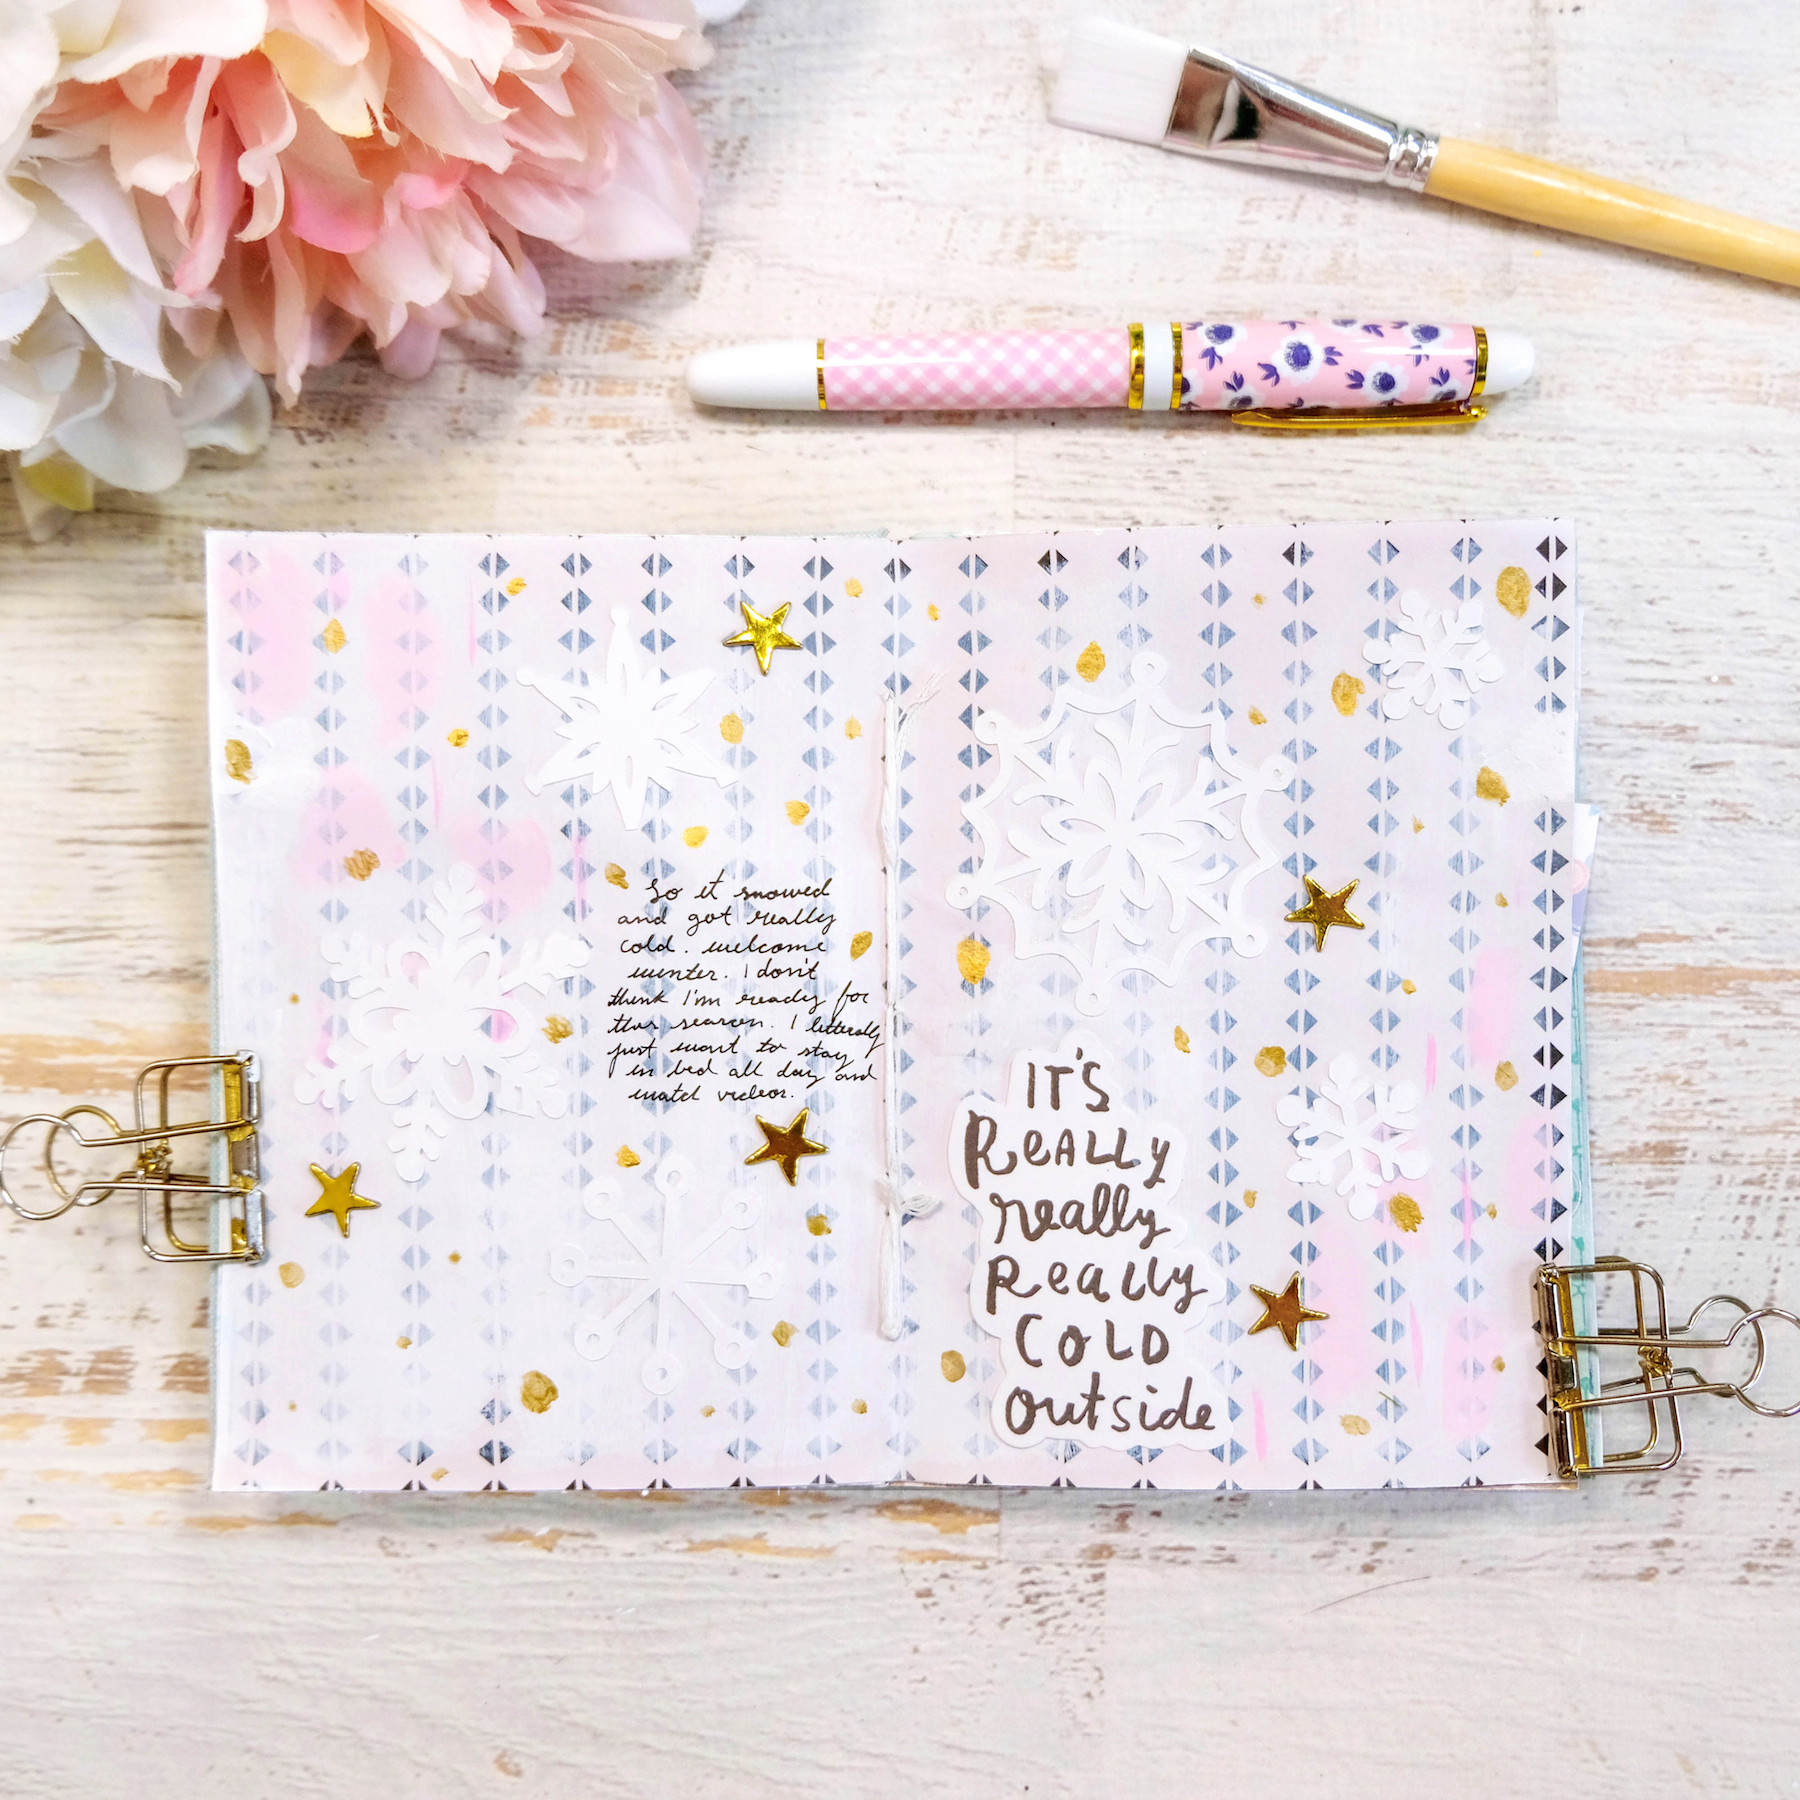 So it snowed
and got really
cold. welcome
winter. I don't
think I'm ready for
this season. I litterally
just want to stay
in bed all day and
watch videos.
IT'S
ReALLY
really
Really
COLD
outside